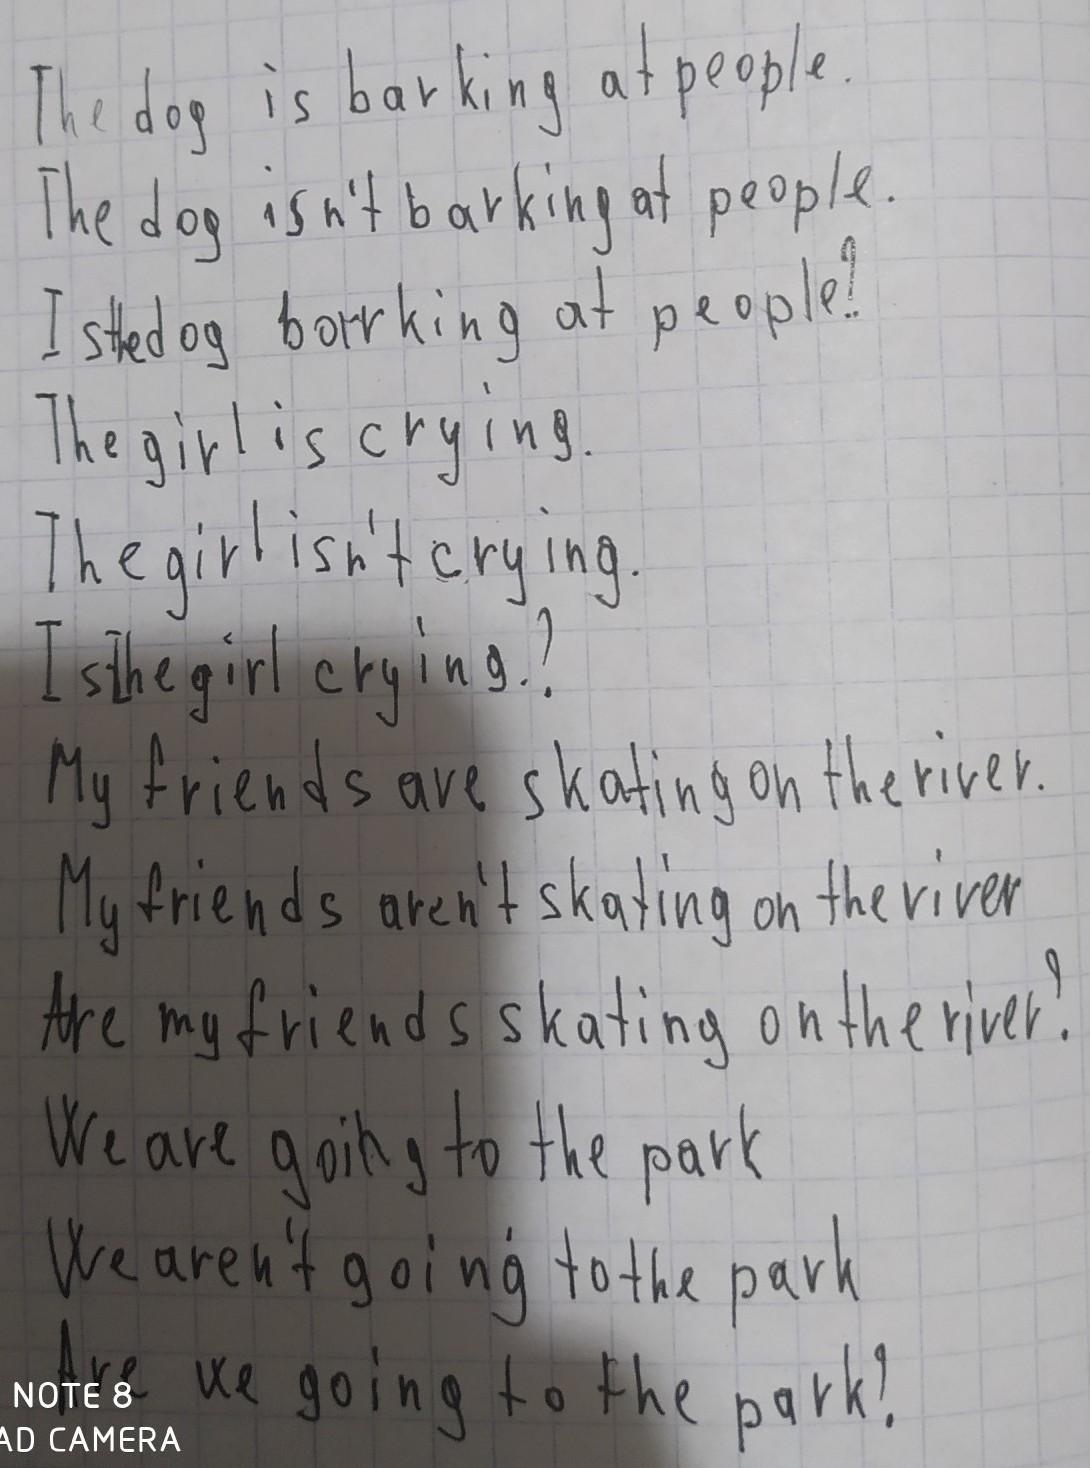 The dog is barking at people.
The dog isn't barking at people.
Is the dog barking at people?
The girl is crying.
The girl isn't crying.
Is the girl crying.?
My friends are skating on the river.
My friends aren't skating on the river
Are my friends skating on the river?
We are going to the park
We aren't going to the park
Are we going to the park?
NOTE 8
AD CAMERA